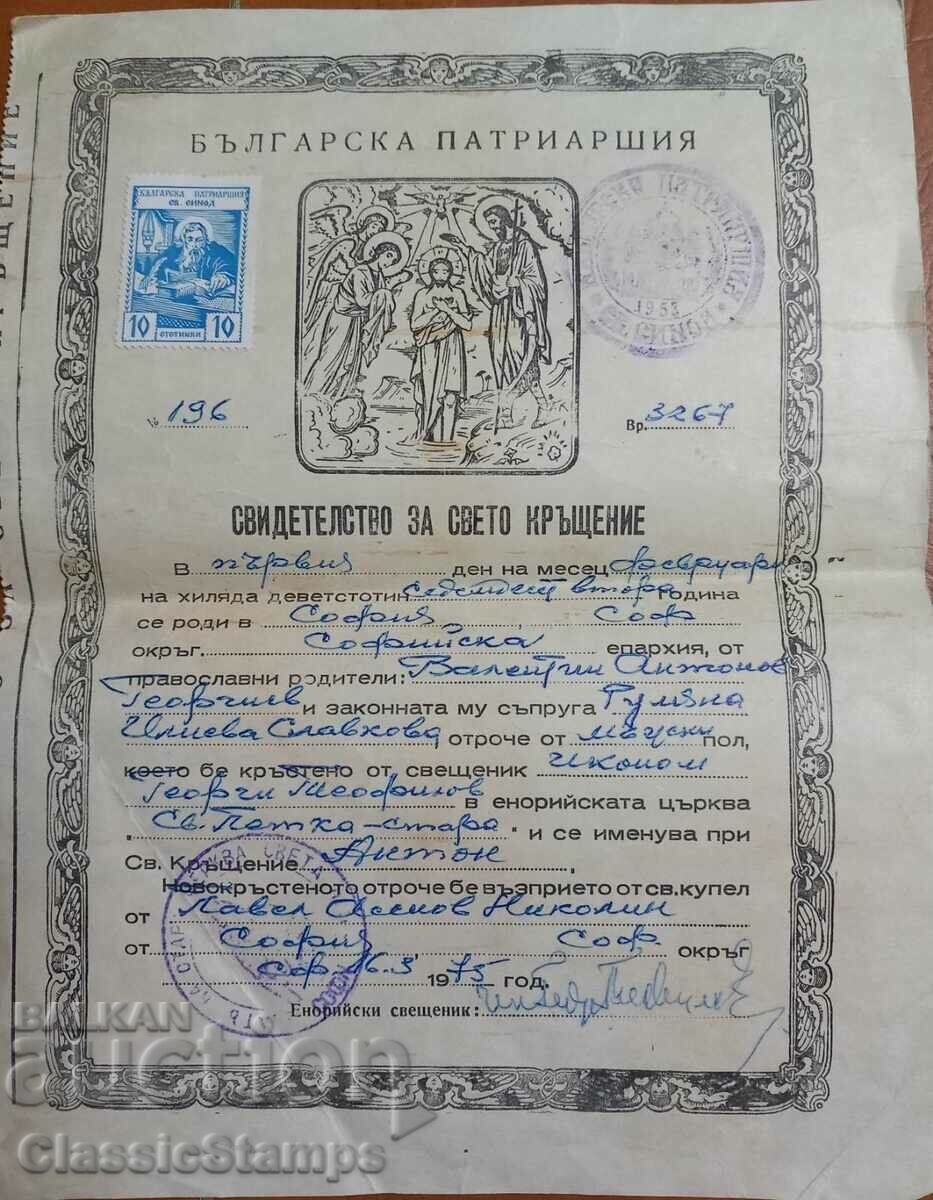 БЪЛГАРСКА ПАТРИАРШИЯ
БЪЛГАРСКА ПАТРИАРШИЯ
СВ. СИНОД
10 СТОТИНКИ 10
1953
№ 196
Вр. 3267
СВИДЕТЕЛСТВО ЗА СВЕТО КРЪЩЕНИЕ
В първия ден на месец февруари
на хиляда деветстотин седемдесет втора година
се роди в София, Соф
окръг. Софийска епархия, от
православни родители: Валентин Антонов
Георгиев и законната му съпруга Румяна
Илиева Славкова, отроче от мъжки пол,
което бе кръстено от свещеник Иконом
Георги Теофилов в енорийската църква
„Св. Петка-стара" и се именува при
Св. Кръщение Антон
Новокръстеното отроче бе възприето от св. купел
от Павел Асенов Николин
от София Соф. окръг
Соф. 16.3 1975 год.
Енорийски свещеник:
ЦЪРКВА СВЕТА
BALKAN
auction
ClassicStamps